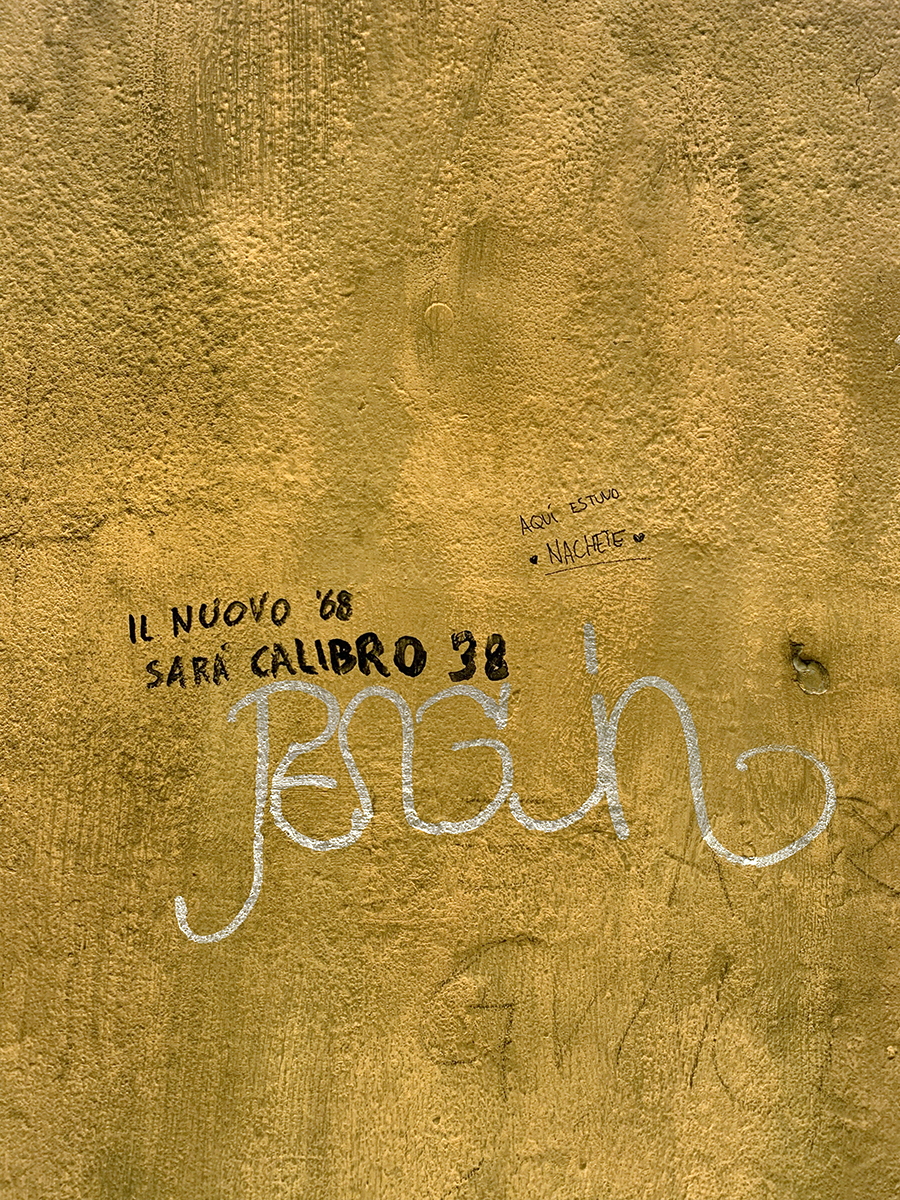 AQUÍ ESTUVO
NACHETE
IL NUOVO '68
SARÁ CALIBRO 38